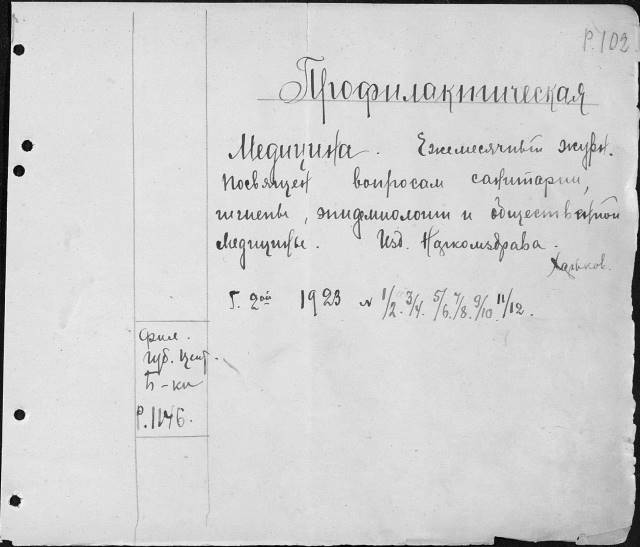 Р.102
Профилактическая
Медицина. Ежемесячный журн.
посвящен вопросам санитарии,
гигиены, эпидемиологии и общественной
медицины. Изд. Наркомздрава.
Харьков.
Г. 2ой 1923 № 1/2. 3/4. 5/6. 7/8. 9/10. 11/12.
Фил.
Губ. Цент.
Б-ки
Р.1146.